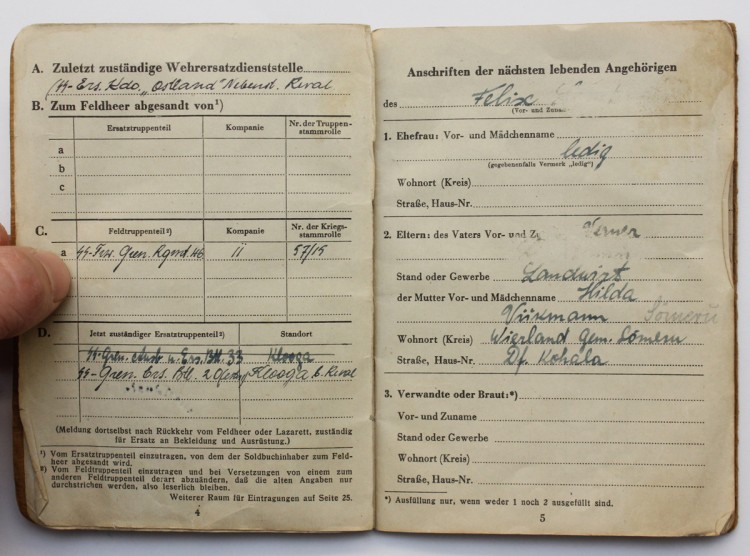 A. Zuletzt zuständige Wehrersatzdienststelle
SS-Ers. Kdo. „Ostland" Nebenst. Reval
B. Zum Feldheer abgesandt von¹)
Ersatztruppenteil Kompanie Nr. der Truppenstammrolle
a
b
c
C. Feldtruppenteil²) Kompanie Nr. der Kriegsstammrolle
a SS-Frw. Gren. Rgmt. 46 ii 57/15
D. Jetzt zuständiger Ersatztruppenteil²) Standort
SS-Gren. u. Ers. Btl. 33 Klooga
SS-Gren. Ers. Btl. 20 Klooga b. Reval
(Meldung dortselbst nach Rückkehr vom Feldheer oder Lazarett, zuständig
für Ersatz an Bekleidung und Ausrüstung.)
¹) Vom Ersatztruppenteil einzutragen, von dem der Soldbuchinhaber zum Feld-
heer abgesandt wird.
²) Vom Feldtruppenteil einzutragen und bei Versetzungen von einem zum
anderen Feldtruppenteil derart abzuändern, daß die alten Angaben nur
durchstrichen werden, also leserlich bleiben.
Weiterer Raum für Eintragungen auf Seite 25.
4
Anschriften der nächsten lebenden Angehörigen
des Felix
(Vor- und Zuna
1. Ehefrau: Vor- und Mädchenname
ledig
(gegebenenfalls Vermerk „ledig")
Wohnort (Kreis)
Straße, Haus-Nr.
2. Eltern: des Vaters Vor- und Z Verner
Stand oder Gewerbe Landwirt
der Mutter Vor- und Mädchenname Hilda
Viikmann Sömeru
Wohnort (Kreis) Wierland Gem. Sömeru
Straße, Haus-Nr. Df. Kohala
3. Verwandte oder Braut:*)
Vor- und Zuname
Stand oder Gewerbe
Wohnort (Kreis)
Straße, Haus-Nr.
*) Ausfüllung nur, wenn weder 1 noch 2 ausgefüllt sind.
5